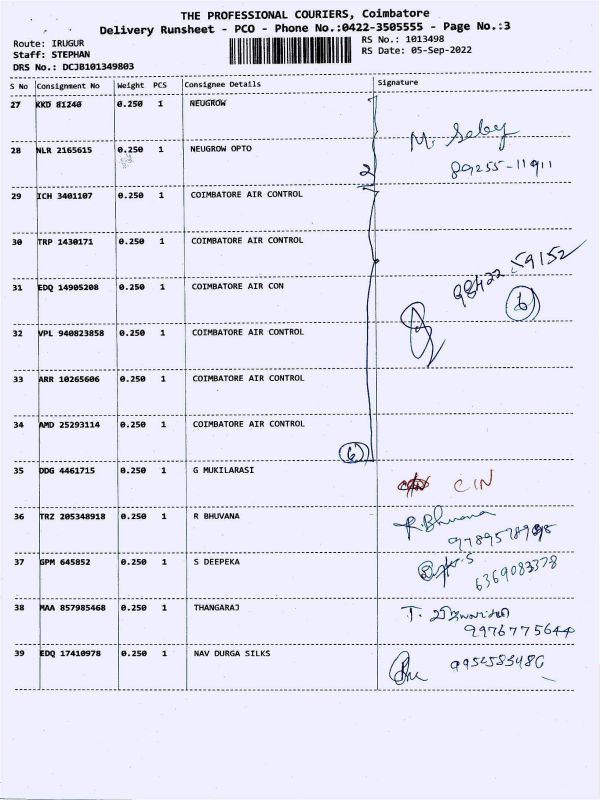 THE PROFESSIONAL COURIERS, Coimbatore
Delivery Runsheet - PCO - Phone No.:0422-3505555 - Page No.:3
Route: IRUGUR
RS No.: 1013498
Staff: STEPHAN
RS Date: 05-Sep-2022
DRS No.: DCJB101349803
S No Consignment No Weight PCS Consignee Details Signature
27 KKD 81240 0.250 1 NEUGROW
28 NLR 2165615 0.250 1 NEUGROW OPTO
89255-11911
2
29 ICH 3401107 0.250 1 COIMBATORE AIR CONTROL
30 TRP 1430171 0.250 1 COIMBATORE AIR CONTROL
98422 59152
31 EDQ 14905208 0.250 1 COIMBATORE AIR CON
6
32 VPL 940823858 0.250 1 COIMBATORE AIR CONTROL
33 ARR 10265606 0.250 1 COIMBATORE AIR CONTROL
34 AMD 25293114 0.250 1 COIMBATORE AIR CONTROL
6
35 DDG 4461715 0.250 1 G MUKILARASI CIN
36 TRZ 205348918 0.250 1 R BHUVANA R.Bhuvana
37 GPM 645852 0.250 1 S DEEPEKA
6369083378
38 MAA 857985468 0.250 1 THANGARAJ
9976775644
39 EDQ 17410978 0.250 1 NAV DURGA SILKS